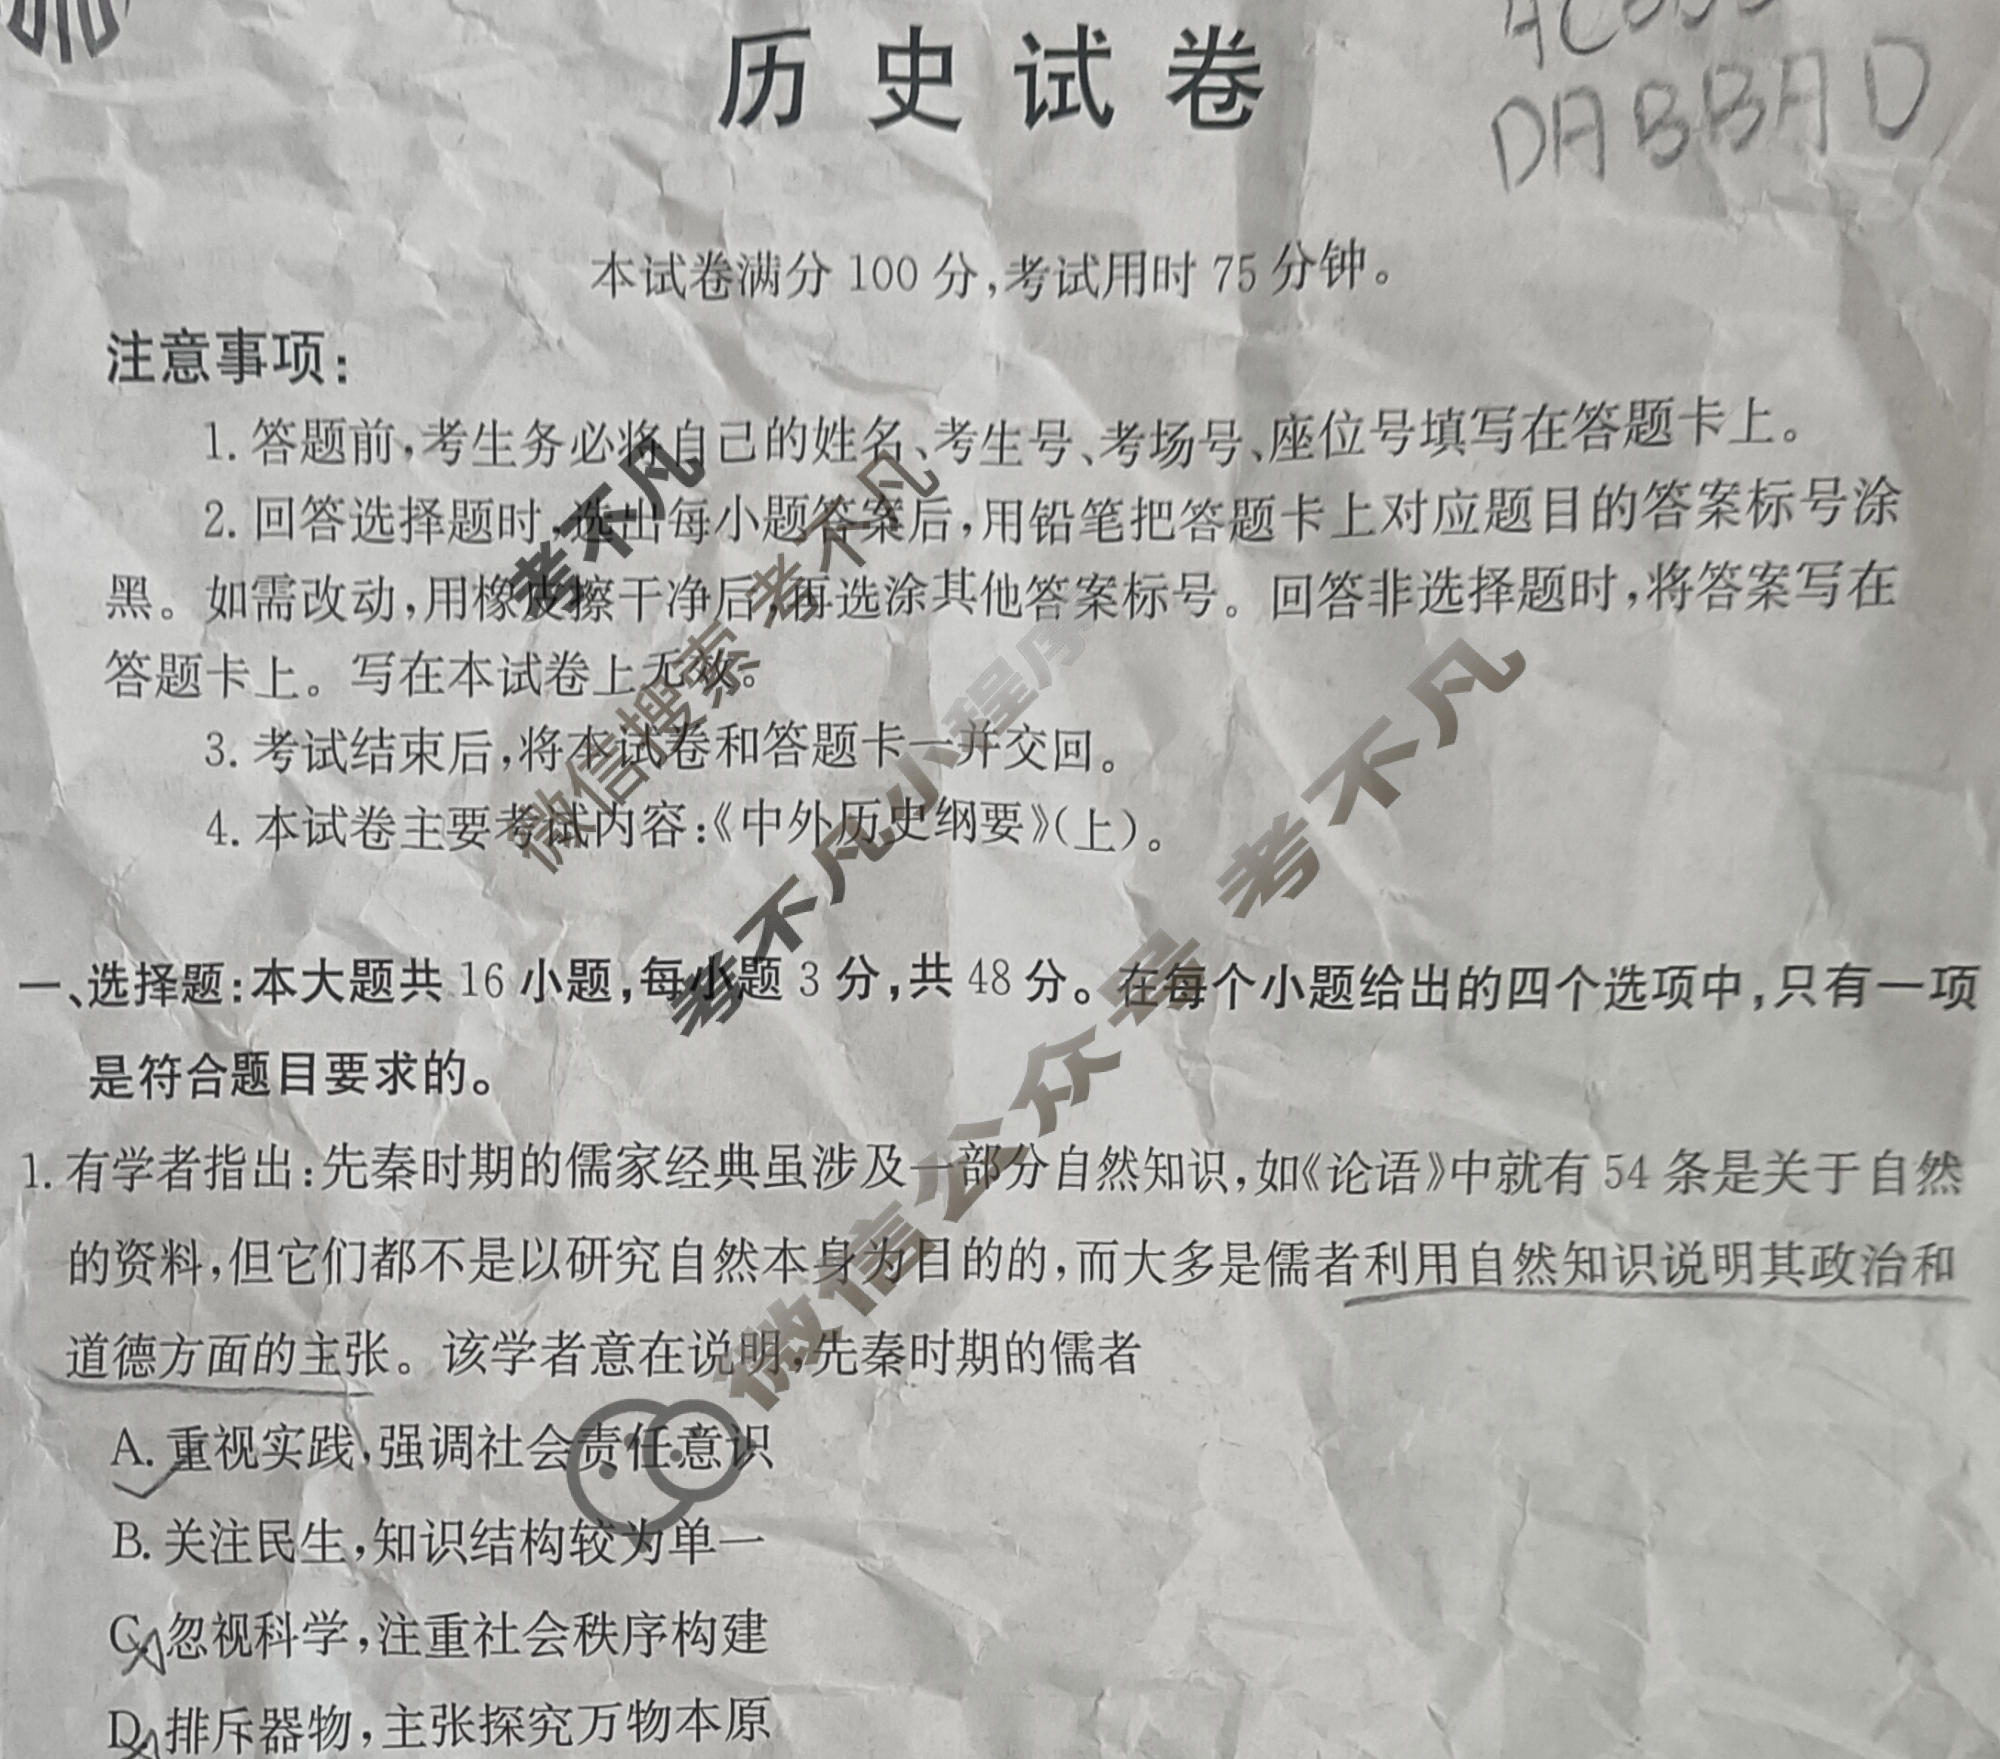 历史试卷
DABBAD
本试卷满分100分,考试用时75分钟。
注意事项:
1. 答题前,考生务必将自己的姓名、考生号、考场号、座位号填写在答题卡上。
2. 回答选择题时,选出每小题答案后,用铅笔把答题卡上对应题目的答案标号涂
黑。如需改动,用橡皮擦干净后,再选涂其他答案标号。回答非选择题时,将答案写在
答题卡上。写在本试卷上无效。
3. 考试结束后,将本试卷和答题卡一并交回。
4. 本试卷主要考试内容:《中外历史纲要》(上)。
一、选择题:本大题共16小题,每小题3分,共48分。在每个小题给出的四个选项中,只有一项
是符合题目要求的。
1. 有学者指出:先秦时期的儒家经典虽涉及一部分自然知识,如《论语》中就有54条是关于自然
的资料,但它们都不是以研究自然本身为目的的,而大多是儒者利用自然知识说明其政治和
道德方面的主张。该学者意在说明,先秦时期的儒者
A. 重视实践,强调社会责任意识
B. 关注民生,知识结构较为单一
C. 忽视科学,注重社会秩序构建
D. 排斥器物,主张探究万物本原
考不凡
微信搜索 考不凡
考不凡小程序
微信公众号 考不凡